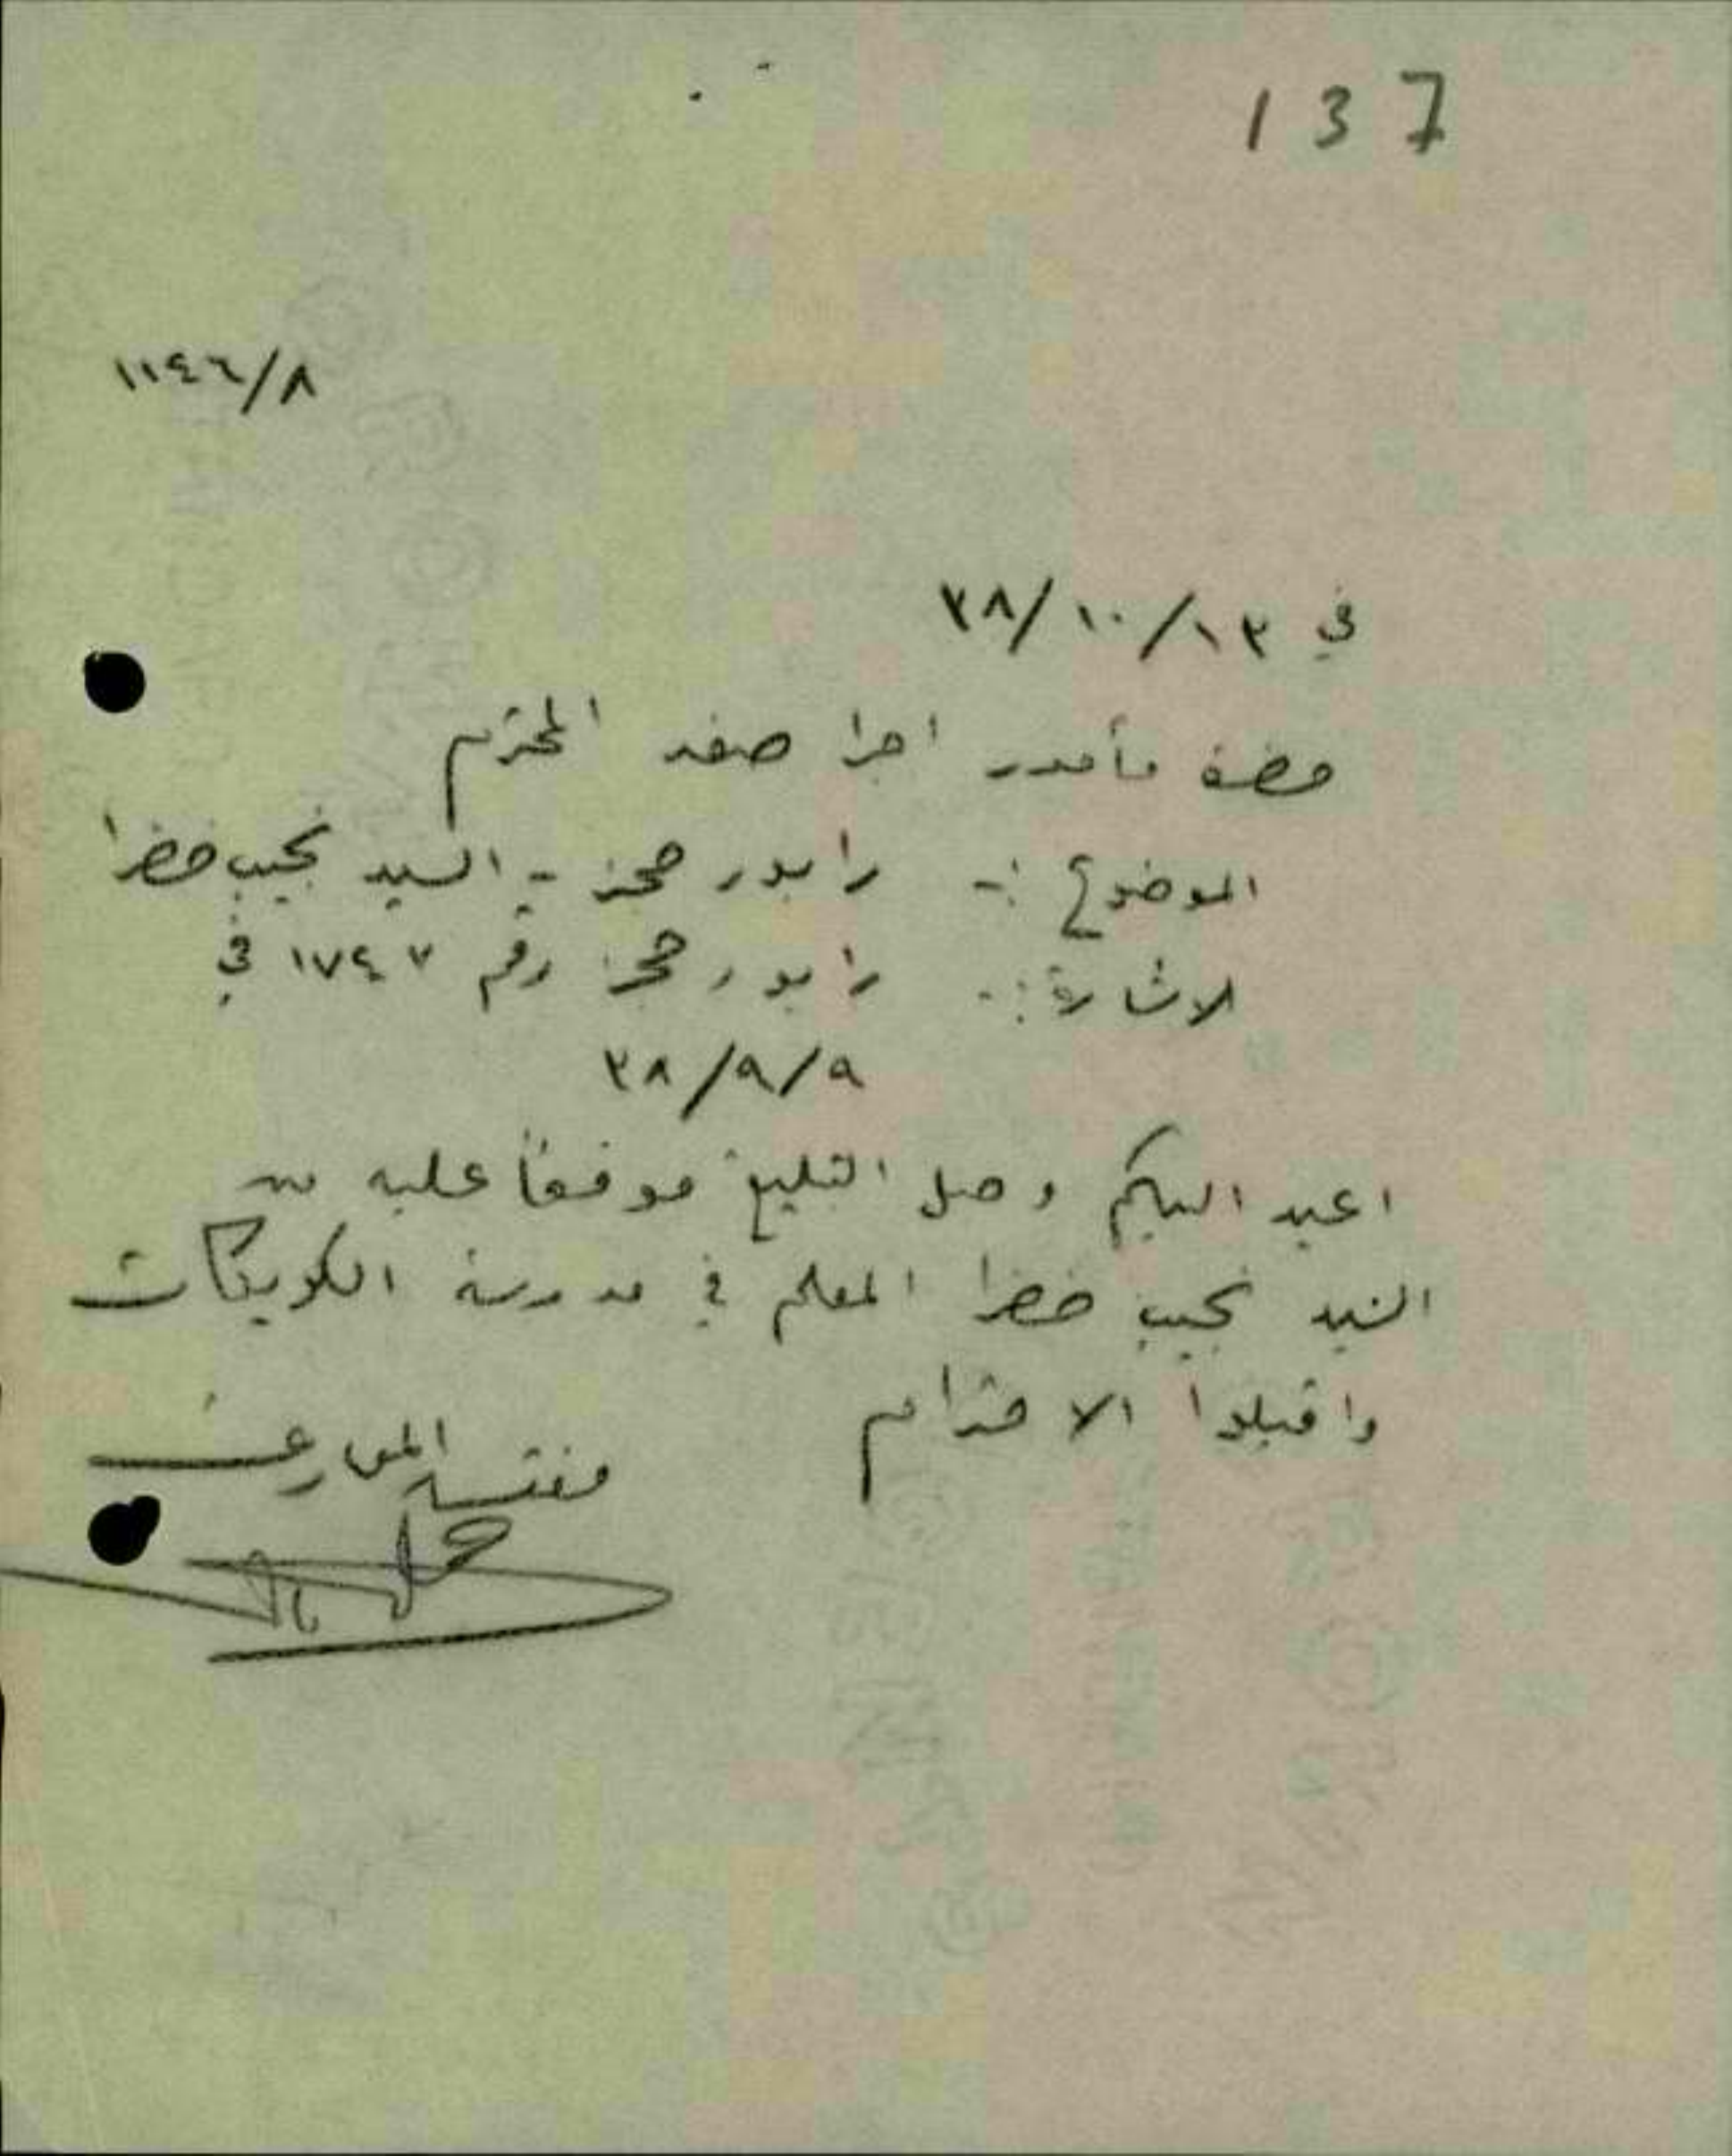 137
١١٤٦/٨
في ١٣/١٠/٣٨
حضرة مأمور اجرا صفد المحترم
الموضوع :- رابور حجز - السيد نجيب خضرا
الاشارة :- رابور حجز رقم ١٧٤٧ في
٣٨/٩/٩
اعيد اليكم وصل التبليغ موقعاً عليه من
السيد نجيب خضرا المعلم في مدرسة الكويكات
واقبلوا الاحترام
مفتش المعارف